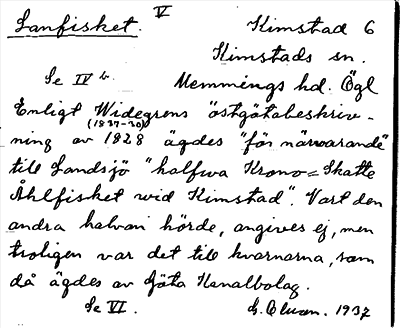 V
Lanfisket. Kimstad 6
Kimstads sn.
Se IV b. Memmings hd. Ögl
Enligt Widegrens "östgötabeskriv-
(1837-30)
ning av 1828 ägdes "för närvarande"
till Landsjö "halfwa Krono=Skatte
Åhlfisket wid Kimstad". Vart den
andra halvan hörde, angives ej, men
troligen var det till kvarnarna, som
då ägdes av Göta Kanalbolag.
Se VI. 1937